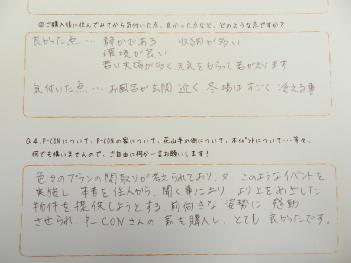 ③ご購入後に住んでみてから気付いた点、良かった点など、どのような点ですか?
良かった点… 静かである 収納が多い
環境が良い
若い夫婦が多く元気をもらって若がえります
気付いた点… お風呂が玄関近く 冬場はすごく冷える事
Q4.P-CONについて、P-CONの家について、花山手の街について、
何でも構いませんので、ご自由に何か一言お願いします!
色々のプランの間取りが考えられており、又 このようなイベントを
実施し 本音を住人から、聞く事により より上をめざした
物件を提供しようとする前向きな姿勢に 感動
させられ P-CONさんの家を購入し、とても 良かったです。